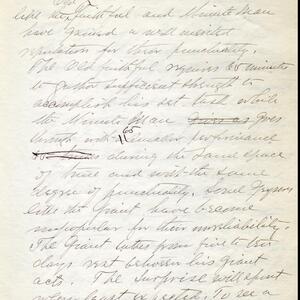 like the Faithful and Minute Man
have gained a well merited
reputation for their punctuality.
The Old Faithful requires 65 minutes
to gather sufficient strength to
accomplish his set task while
the Minute Man goes
through with 65 similar performance
during the same space
of time and with the same
degree of punctuality. Some Geysers
like the Giant have become
unpopular for their unreliability.
The Giant takes from five to ten
days rest between his giant
acts. The Surprise will spout
when least expected. To see a